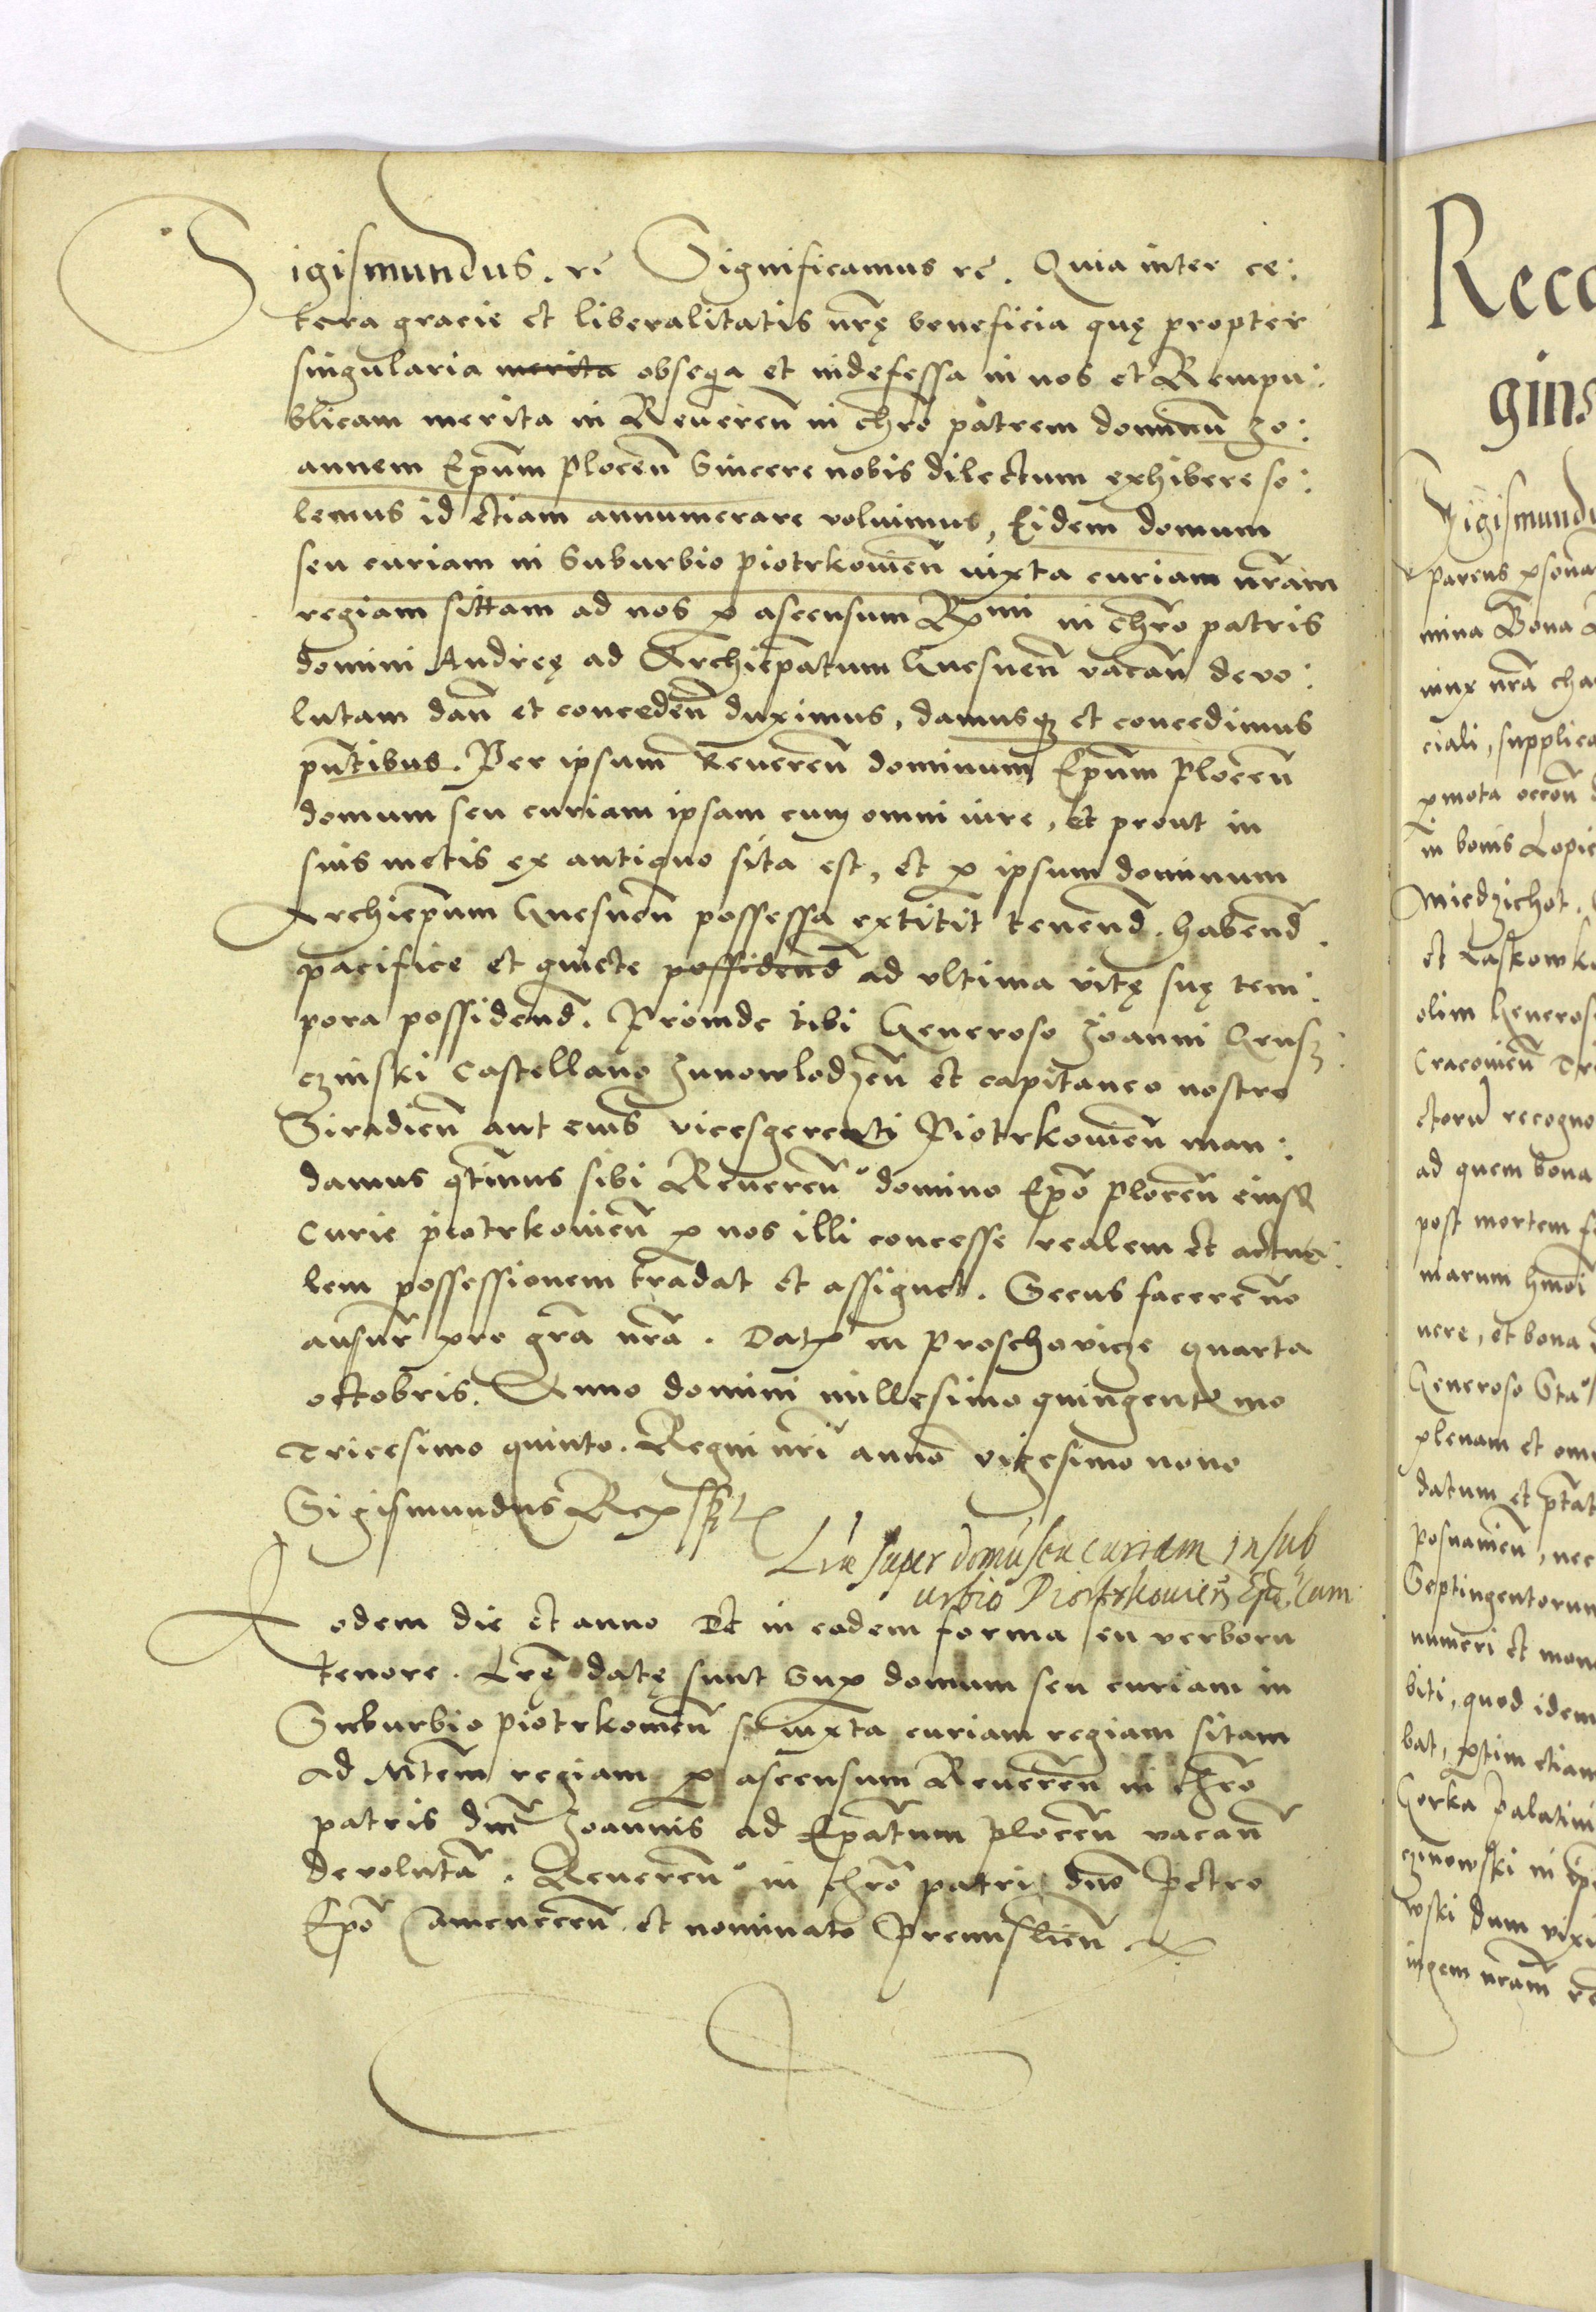 Sigismundus. rc̄ Significamus rc̄. Quia inter ce:
tera gracie et liberalitatis nr̄ę beneficia quę propter
singularia merita obsequia et indefessa in nos et Rempu:
blicam merita in Reueren̄ in chr̄o patrem dominū Jo:
annem Epūm plocen̄ Sincere nobis dilectum exhibere so:
lemus id etiam annumerare voluimus, Eidem domum
seu curiam in Suburbio piotrkouien̄ iuxta curiam nr̄am
regiam sittam ad nos p ascensum Rx̄mi in chr̄o patris
domini Andreę ad Archiep̄atum Gnesnen̄ vacan̄ devo:
lutam dan̄ et conceden̄ duximus, damusq; et concedimus
pn̄tibus. Per ipsum Reueren̄ dominum Epūm plocen̄
domum seu curiam ipsam cum omni iure, et prout in
suis metis ex antiquo sita est, et p ipsum dominum
Archiepūm Gnesnen̄ possessa extitit tenend̄. habend̄
pacifice et quiete possidend̄ ad vltima vitę suę tem:
pora possidend̄. Proinde tibi Generoso Joanni Krusz:
czinski Castellano Junowlodzen̄ et capitaneo nostro
Siradien̄ aut eius vicesgerenti Piotrkouien̄ man:
damus qt̄inus sibi Reueren̄º domino Ep̄o plocen̄ eiusd̄
Curie piotrkouien̄ p nos illi concesse realem et actua:
lem possessionem tradat et assignet. Secus facere nō
ausur̄ pro grā nr̄a. Datx in proschovicze quarta
octobris. Anno domini millesimo quingentxmo
Tricesimo quinto. Regni nr̄i anno vigesimo nono
Sigismundus Rex sspt
Lr̄æ super domū seu curiam in sub
urbio Piotrkouien̄ Epō. Cam
Eodem die et anno Et in eadem forma seu verborū
tenore. Lr̄ę datę sunt Sup domum seu curiam in
Suburbio piotrkouien̄ iuxta curiam regiam sitam
ad Mtēm regiam p ascensum Reueren̄ in chr̄o
patris dnī Joannis ad Ep̄atum plocen̄ vacan̄
devolutā. Reueren̄º in chr̄o patri dnō Petro
Ep̄o Camenecen̄ et nominato Premislien̄
Reco
gins
Sigismundu
parens psona
mina Bona
nux nr̄a cha
ciali, supplica
pmota occon̄
in bonis Lopie
Miedzichot.
et Laskowk
olim Generosi
Cracouien̄
ctorū recogno
ad quem bona
post mortem
marum hmōi
nere, et bona
Generoso Sta
plenam et om
datum et ptāt
posnanien̄, nec
Septingentorum
numeri et mon
biti, quod idem
bat, ptim etiam
Gorka Palatini
wski dum vixi
ingem nr̄am